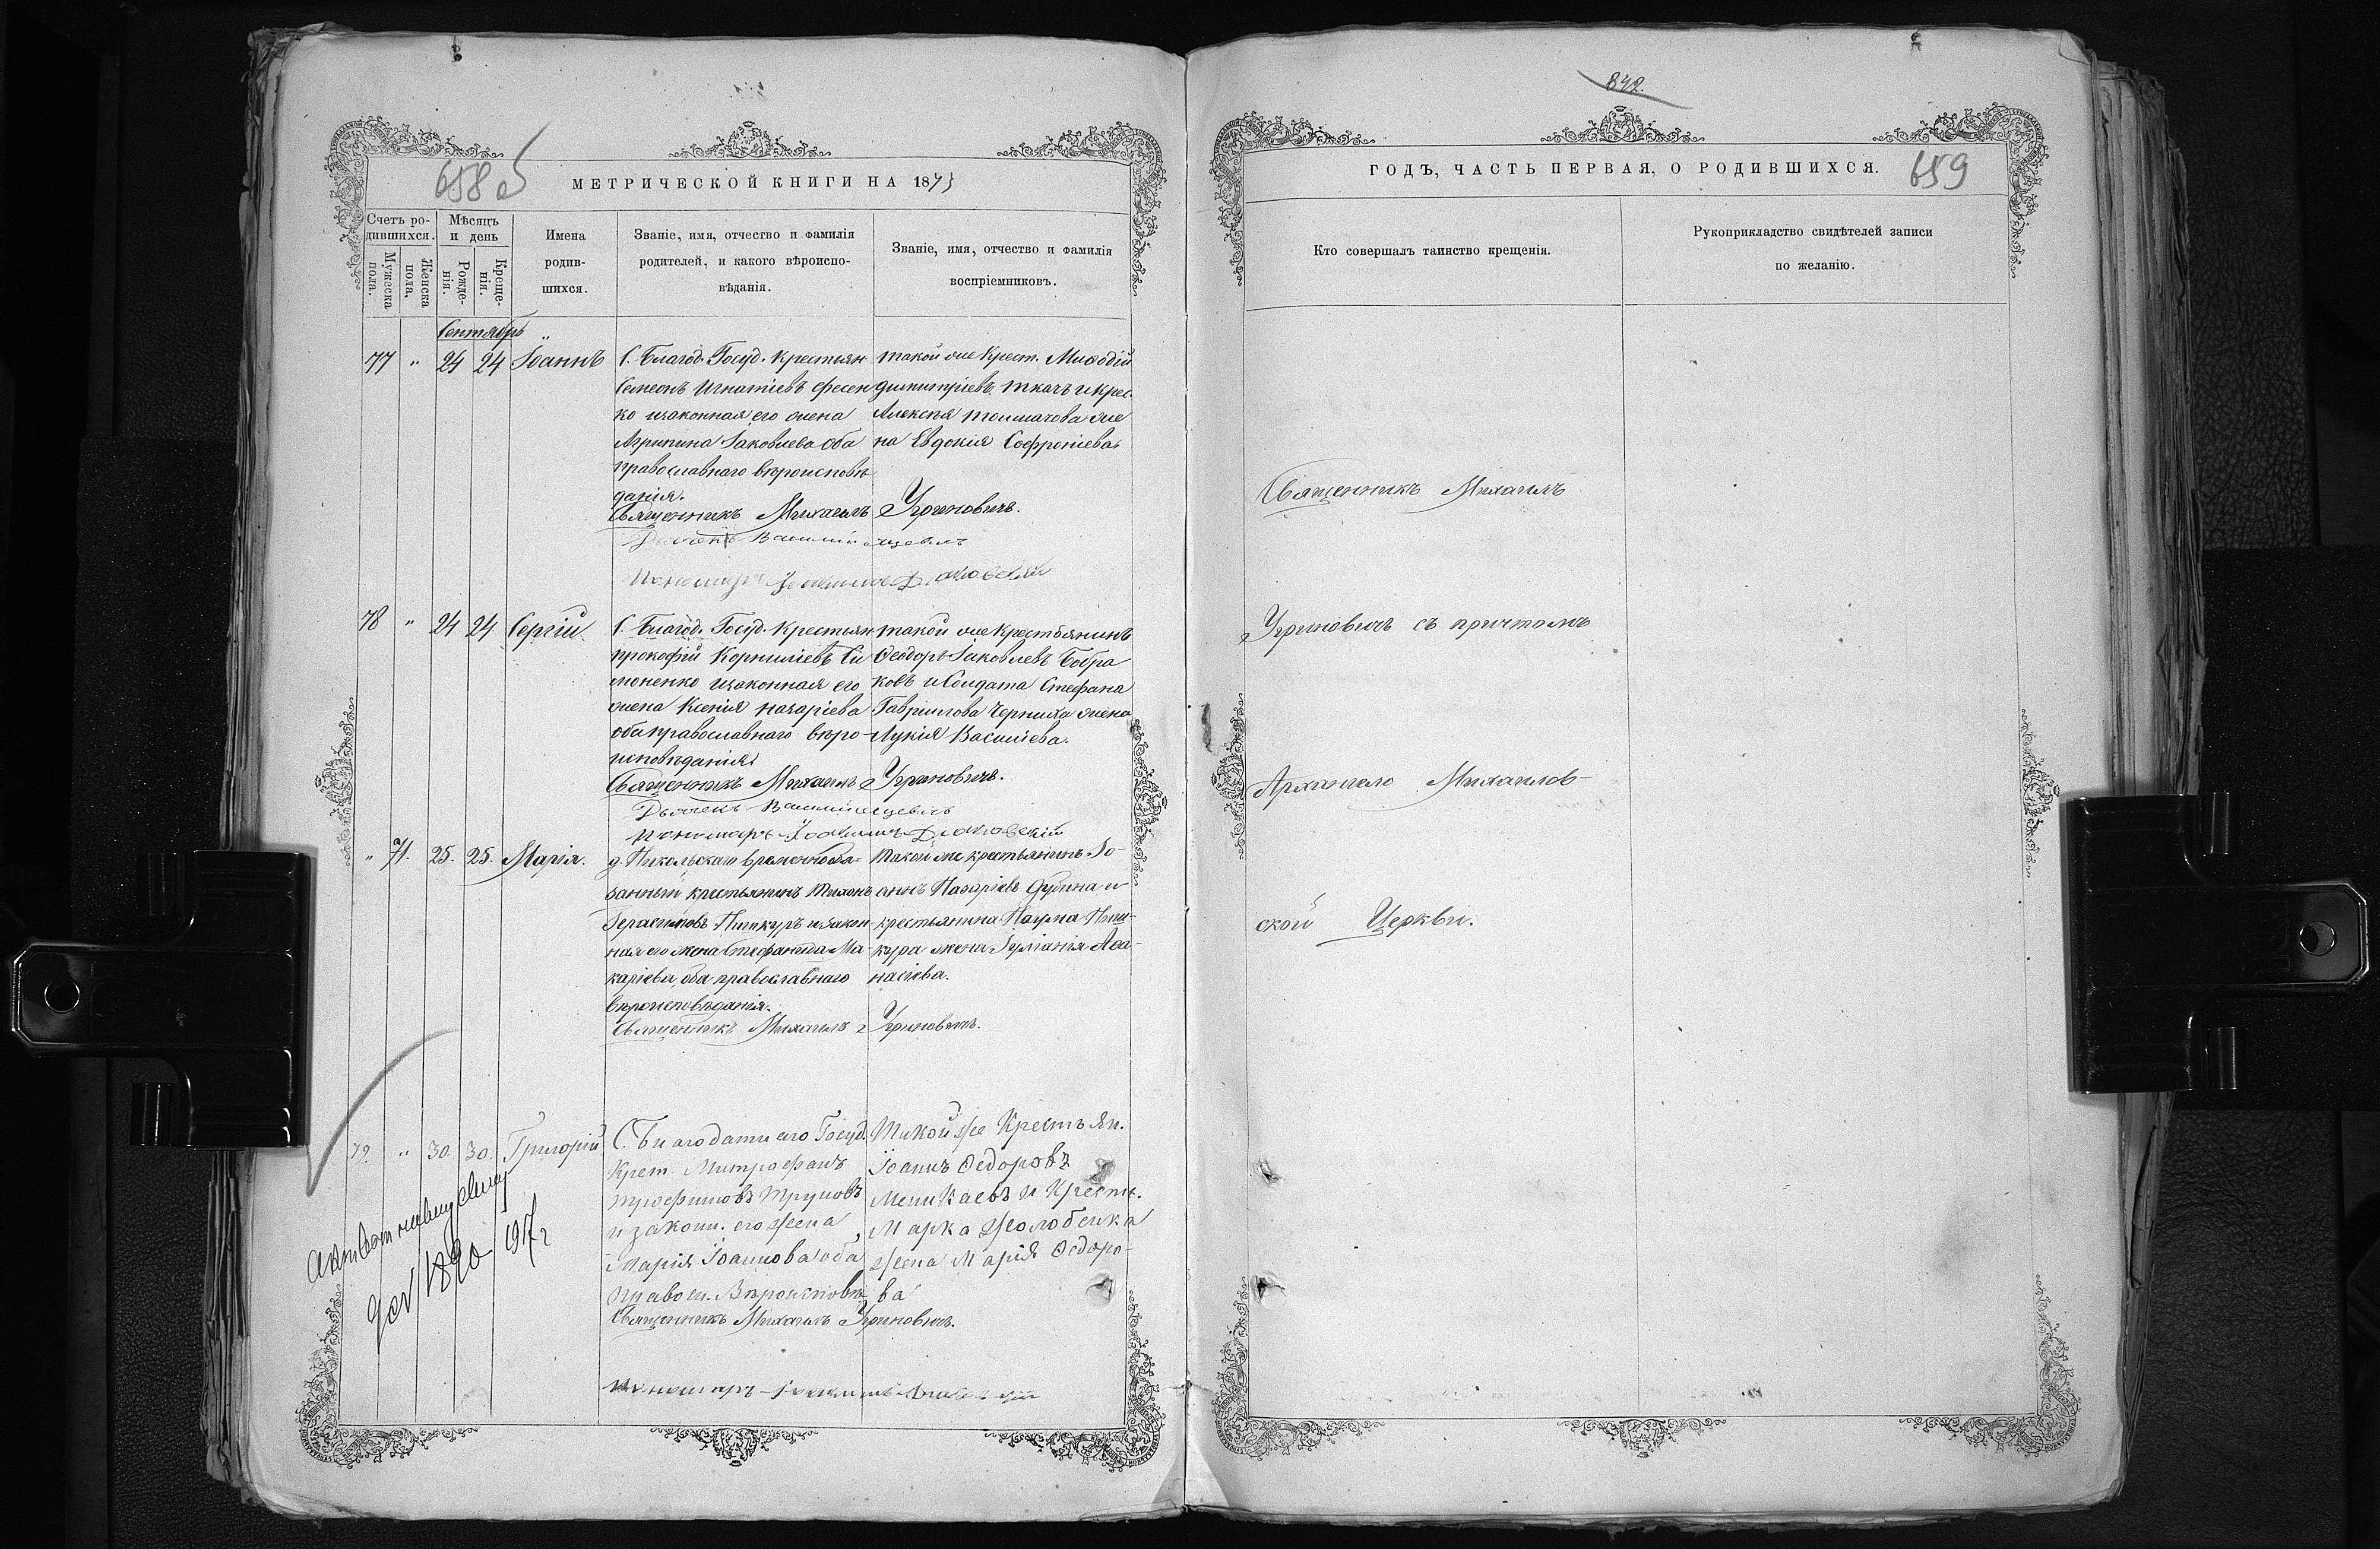 658 об
МЕТРИЧЕСКОЙ КНИГИ НА 1873
Счетъ ро-
дившихся.
Мужеска
пола.
Женска
пола.
Мѣсяцъ
и день
Рожде-
нія.
Креще-
нія.
Имена
родив-
шихся.
Званіе, имя, отчество и фамилія
родителей, и какого вѣроиспо-
вѣданія.
Званіе, имя, отчество и фамилія
воспріемниковъ.
Сентябрь
77 " 24 24 Іоаннъ
С. Благод. Госуд. крестьян
Симеонъ Игнатіевъ Фесен
ко изаконная его жена
Агрипина Іаковлева оба
православнаго вѣроисповѣ
данія.
такой же Крест. Мифодій
димитріевъ ткачъ и крес.
Алексѣя толмачова же
на Евдокія Софроніева
Священникъ Михаилъ Угриновичъ.
Дьячекъ Василій
Пономарь
78 " 24 24 Сергій.
С. Благод. Госуд. крестьян
прокофій Корниліевъ Си
моненко изаконная его
жена Ксенія назаріева
оба православнаго вѣро-
исповѣданія
такой же крестьянинъ
Ѳеодоръ Іаковлевъ Бобра
ковъ и Солдата Стефана
Гавріилова Черныха жена
Лукія Василіева.
Священникъ Михаилъ Угриновичъ.
Дьячекъ Василій
Пономарь
" 71. 25. 25. Марія.
д. Никольскаго временнообя-
занный крестьянинъ Тихонъ
Герасимовъ и закон-
ная его жена Стефанида Ма-
каріева, оба православнаго
вѣроисповѣданія.
Такой же крестьянинъ Іо-
аннъ Назаріевъ Дубина и
крестьянина Наума
кура жена Іуліанія Аѳа-
насіева.
Священникъ Михаилъ Угриновичъ.
79. " 30. 30. Григорій
С. Благодатнаго Госуд.
Крет. Митрофанъ
трофимовъ Труновъ
и законн. его жена
Марія Іоаннова оба
правосл. Вѣроисповѣ
Такой же Крестьян.
Іоаннъ Ѳедоровъ
и Кресть.
Марка Жолобенка
жена Марія Ѳедоро-
ва
Священникъ Михаилъ Угриновичъ.
Пономарь
1917 г
842.
ГОДЪ, ЧАСТЬ ПЕРВАЯ, О РОДИВШИХСЯ.
659
Кто совершалъ таинство крещенія.
Рукоприкладство свидѣтелей записи
по желанію.
Священникъ Михаилъ
Угриновичъ съ причтомъ
Архангело Михаилов-
ской Церкви.